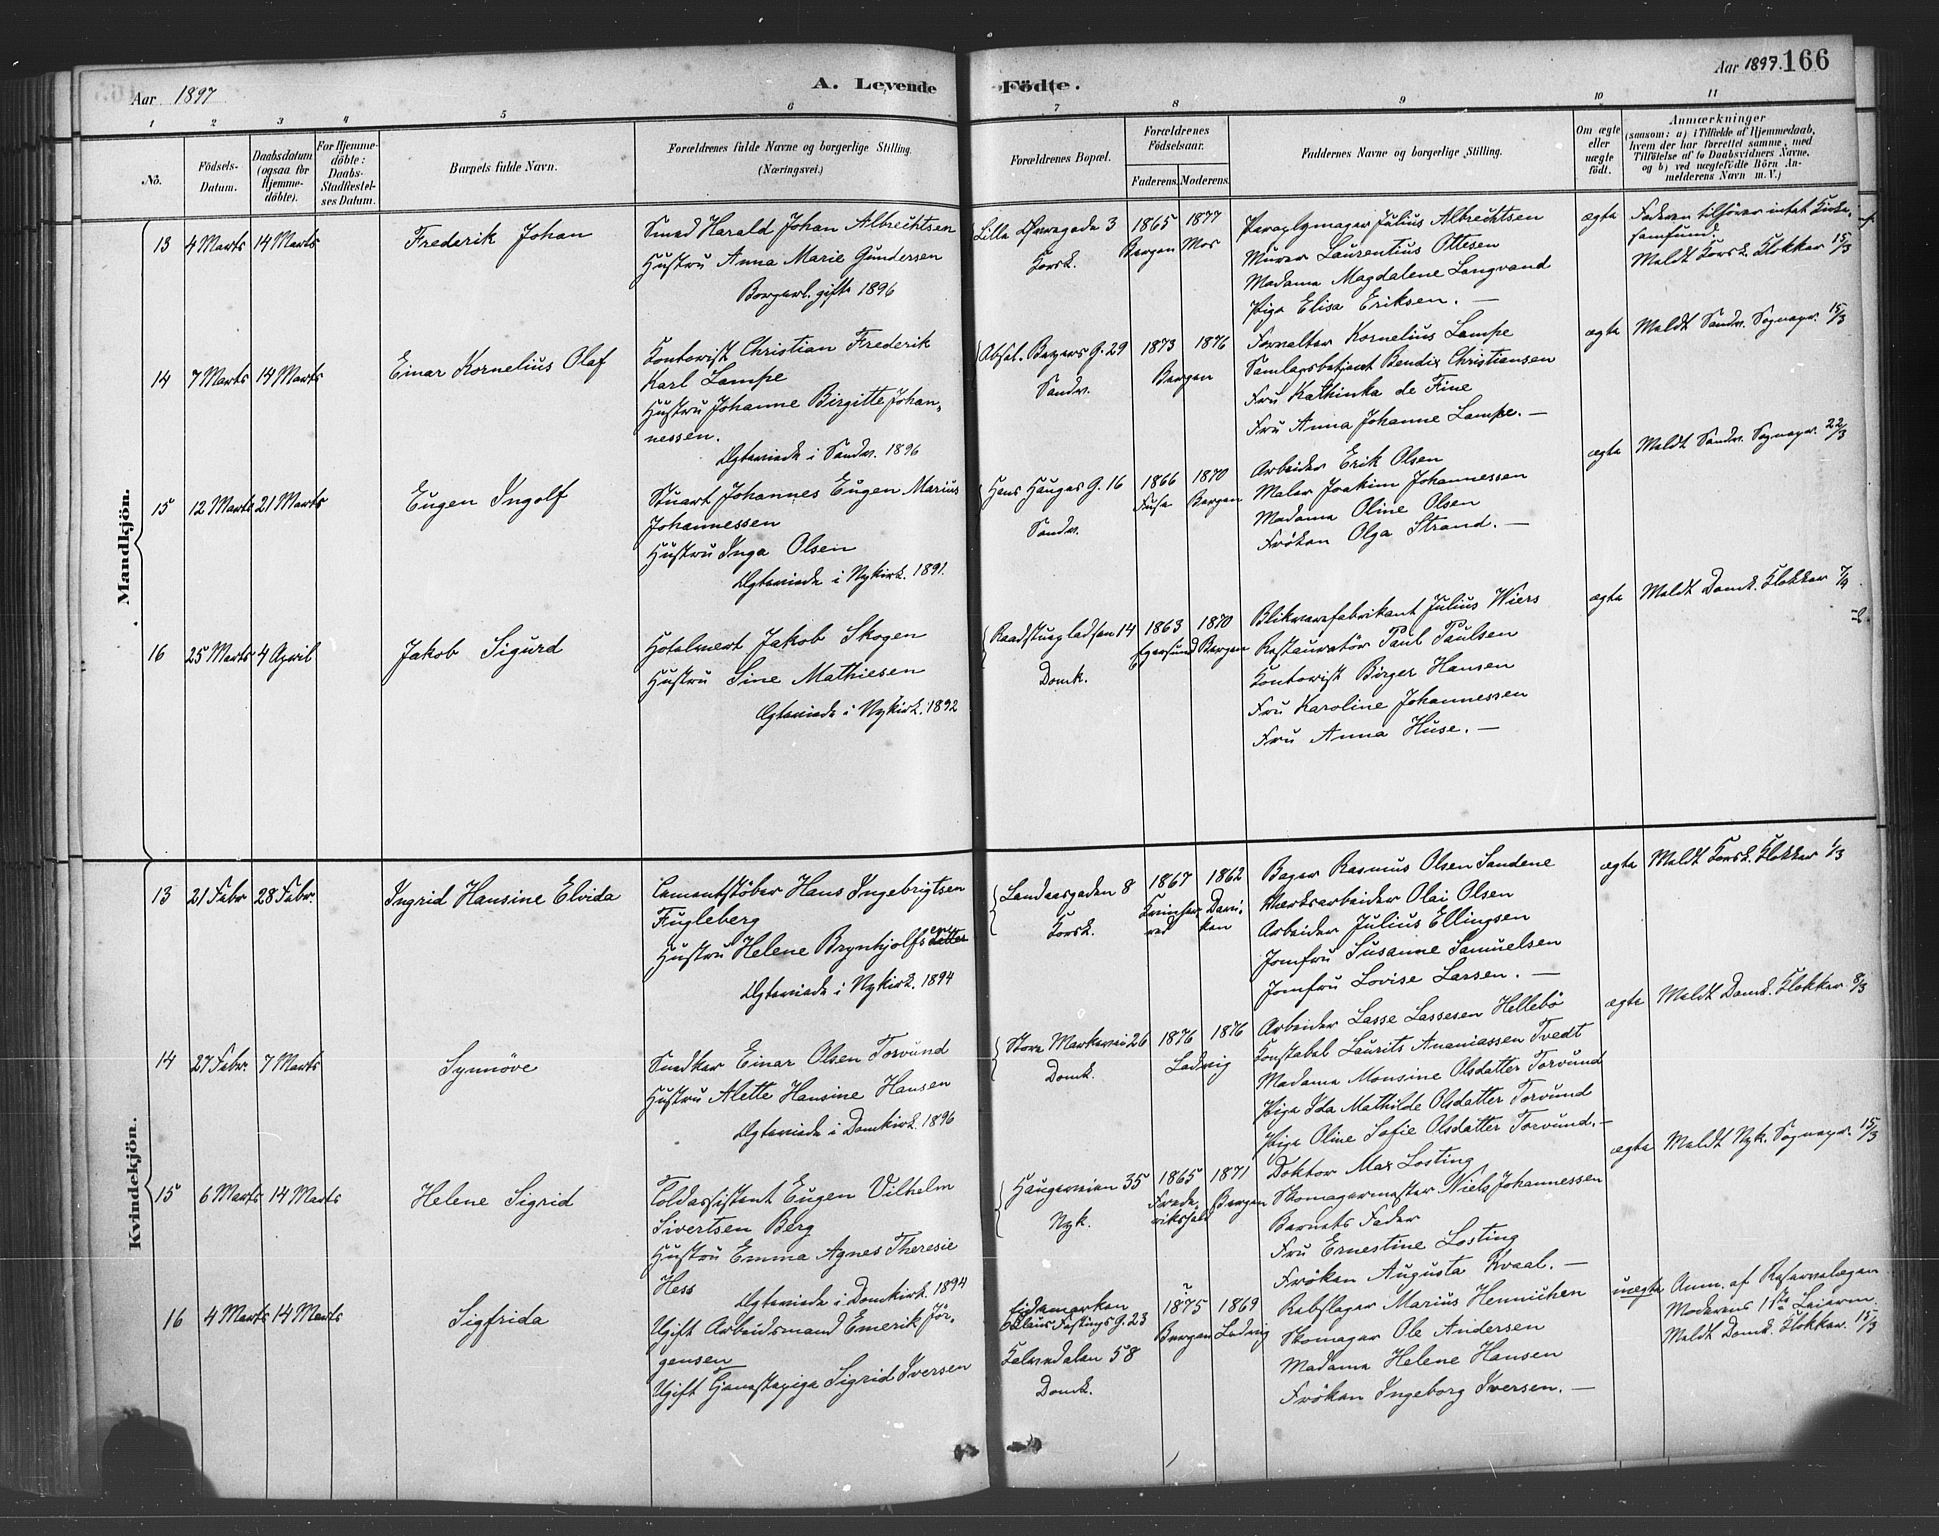 Aar 1897
A. Levende
Födte.
Aar 1897. 166
1 2 3 4 5 6 7 8 9 10 11
No.
Födsels-
Datum.
Daabsdatum
(ogsaa for
Hjemme-
döbte).
For Hjemme-
döbte:
Daabs-
Stadfæstel-
ses Datum.
Barnets fulde Navn.
Forældrenes fulde Navne og borgerlige Stilling.
(Næringsvei.)
Forældrenes Bopæl.
Forældrenes
Födselsaar.
Faderens. Moderens.
Faddernes Navne og borgerlige Stilling.
Om ægte
eller
uægte
födt.
Anmærkninger
(saasom: a) i Tilfælde af Hjemmedaab,
hvem der har forrettet samme, med
Tilföielse af to Daabsvidners Navne,
og b) ved uægtefödte Börn An-
melderens Navn m. V.)
Mandkjön.
13 4 Marts 14 Marts
Frederik Johan
Smed Harald Johan Albrechtsen
Hustru Anna Marie Gundersen
Borgerl. gifte 1896
Lille Øvregade 3
Korsk.
1865 1877
Bergen Mos
Paraplymager Julius Albrechtsen
Murer Laurentius Ottesen
Madame Magdalene Langvand
Pige Elisa Eriksen. —
ægte
Faderen tilhører intet Kirke-
samfund.
Meldt Korsk. Klokker 15/3
14 7 Marts 14 Marts
Einar Kornelius Olaf
Kontorist Christian Frederik
Karl Lampe
Hustru Johanne Birgitte Johan-
nessen.
Ægteviede i Sandv. 1896
Absal. Beyers G. 29
Sandv.
1873 1876
Bergen
Forvalter Kornelius Lampe
Samlagsbetjent Bendix Christiansen
Fru Kathinka de Fine
Fru Anna Johanne Lampe. —
ægte
Meldt Sandv. Sognepr. 15/3
15 12 Marts 21 Marts
Eugen Ingolf
Stuert Johannes Eugen Marius
Johannessen
Hustru Inga Olsen
Ægteviede i Nykirk. 1891.
Hans Hauges G. 16
Sandv.
1866 1870
Fusa Bergen
Arbeider Erik Olsen
Maler Joakim Johannessen
Madame Oline Olsen
Frøken Olga Strand. —
ægte
Meldt Sandv. Sognepr. 22/3
16 25 Marts 4 April
Jakob Sigurd
Hotelvert Jakob Skogen
Hustru Sine Mathiesen
Ægteviede i Nykirk. 1892
Raadstuepladsen 14
Domk.
1863 1870
Egersund Bergen
Blikvarefabrikant Julius Wiers
Restauratør Paul Paulsen
Kontorist Birger Hansen
Fru Karoline Johannessen
Fru Anna Huse. —
ægte
Meldt Domk. Klokker 7/4
Kvindekjön.
13 21 Febr 28 Febr.
Ingrid Hansine Elvida
Cementstøber Hans Ingebrigtsen
Fugleberg
Hustru Helene Brynhjolfsdatter
Ægteviede i Nykirk. 1894
Landaasgaden 8
Korsk.
1867 1862
Kvinher-
red
Davi-
ken
Bager Rasmus Olsen Sandene
Verksarbeider Olai Olsen
Arbeider Julius Ellingsen
Jomfru Susanne Samuelsen
Jomfru Lovise Larsen. —
ægte
Meldt Korsk. Klokker 1/3
14 27 Febr. 7 Marts
Synnöve
Snedker Einar Olsen Torvund
Hustru Alette Hansine Hansen
Ægteviede i Domkirk. 1896
Store Markevei 26
Domk.
1876 1876
Ladvig
Arbeider Lasse Lassesen Hellebö
Konstabel Laurits Ananiassen Tvedt
Madame Monsine Olsdatter Torvund
Pige Ida Mathilde Olsdatter Torvund
Pige Oline Sofie Olsdatter Torvund. —
ægte
Meldt Domk. Klokker 8/3
15 6 Marts 14 Marts
Helene Sigrid
Toldassistent Eugen Vilhelm
Sivertsen Berg
Hustru Emma Agnes Theresie
Hess
Ægteviede i Domkirk. 1894
Haugeveien 35
Nyk.
1865 1871
Frede-
rikshald
Bergen
Doktor Max Losting
Skomagermester Niels Johannessen
Barnets Fader
Fru Ernestine Losting
Frøken Augusta Kvaal. —
ægte
Meldt Nyk. Sognepr. 15/3
16 4 Marts 14 Marts
Sigfrida
Ugift Arbeidsmand Emerik Jör-
gensen
Ugift Tjenestepige Sigrid Iversen
Eidemarken
Claus Fastings G. 23
Kalvedalen 58
Domk.
1875 1869
Bergen Ladvig
Rebslager Marius Hennichen
Skomager Ole Andersen
Madame Helene Hansen
Frøken Ingeborg Iversen. —
uægte
Anm. af Reservelægen
Moderens 1ste Leierm.
Meldt Domk. Klokker. 15/3